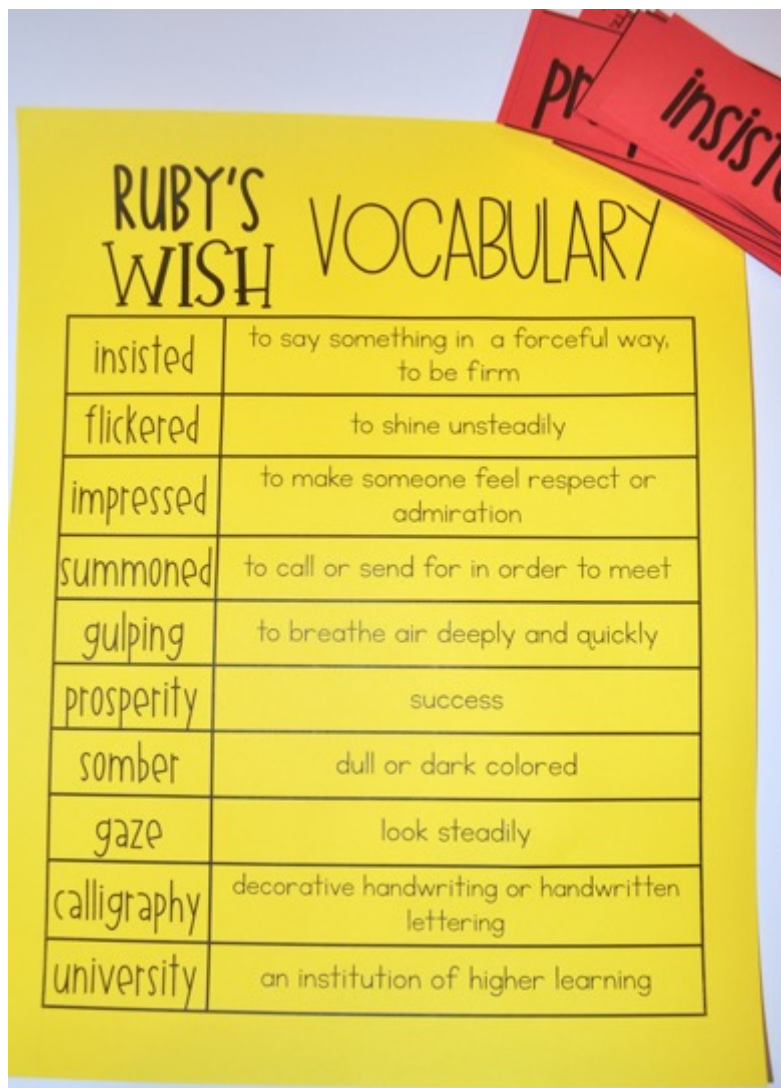 insisted
RUBY'S
WISH
VOCABULARY
insisted
to say something in a forceful way,
to be firm
flickered
to shine unsteadily
impressed
to make someone feel respect or
admiration
summoned
to call or send for in order to meet
gulping
to breathe air deeply and quickly
prosperity
success
somber
dull or dark colored
gaze
look steadily
calligraphy
decorative handwriting or handwritten
lettering
university
an institution of higher learning